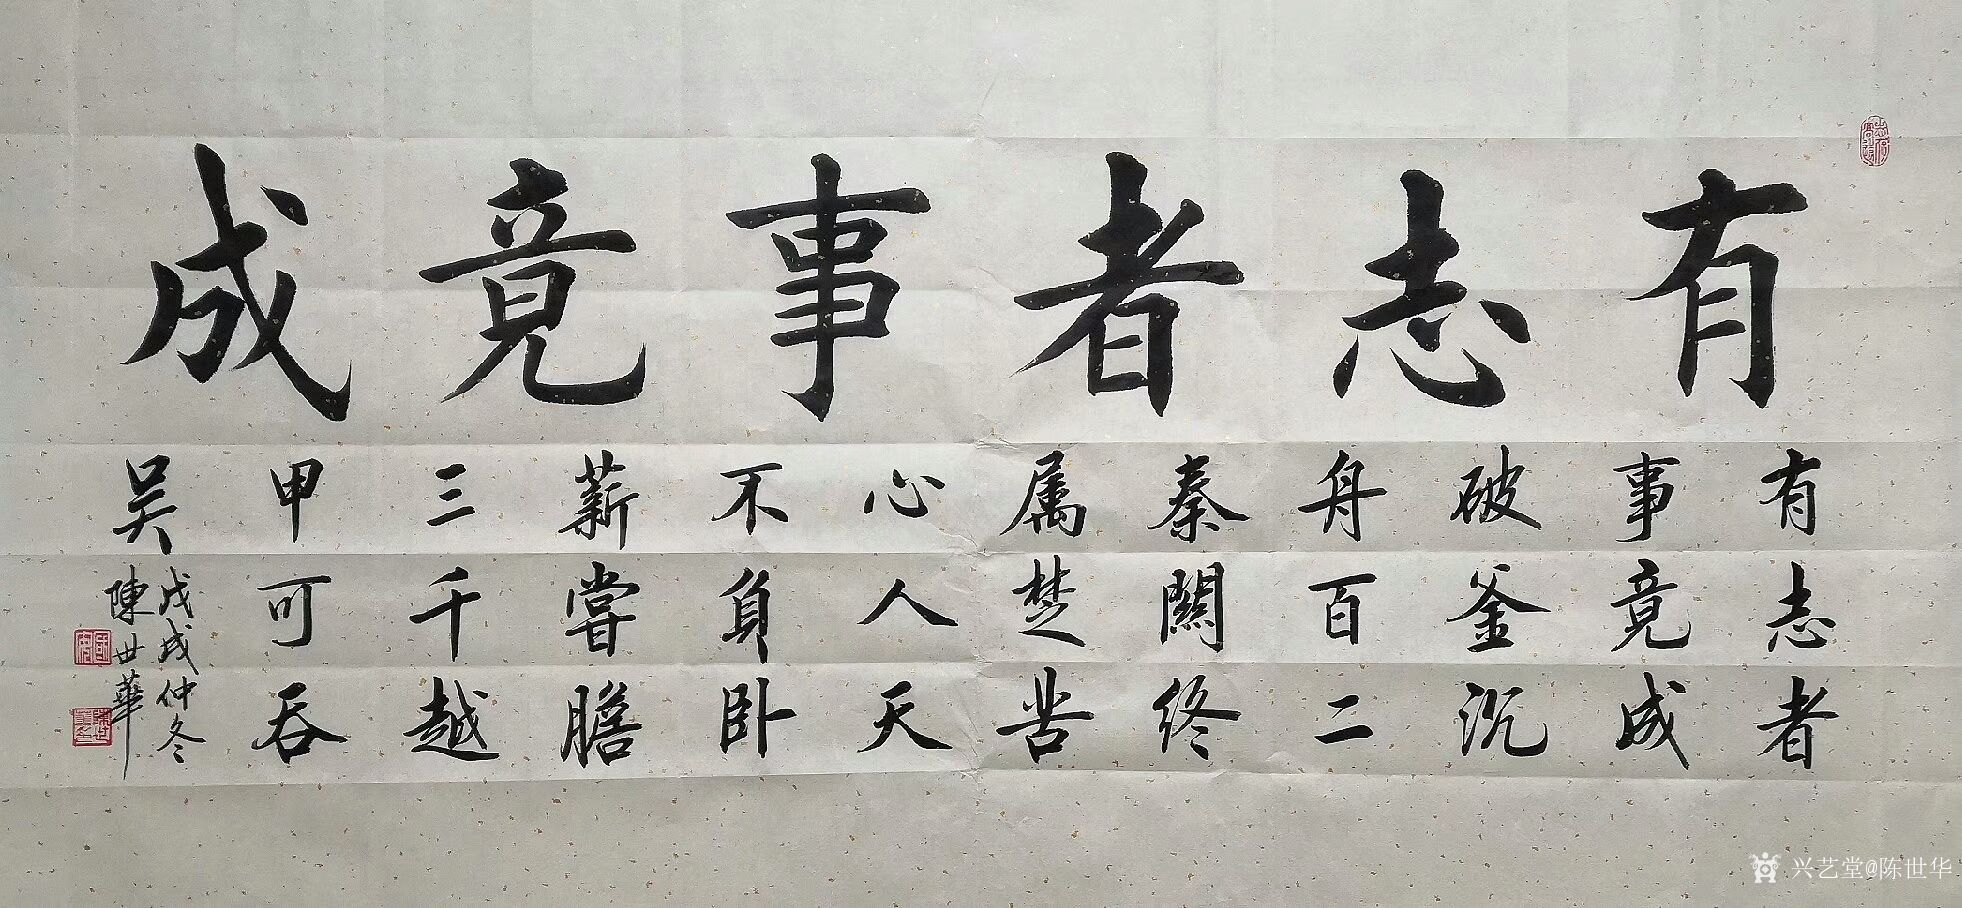 有志者事竟成
有志者
事竟成
破釜沉
舟百二
秦關终
属楚苦
心人天
不負卧
薪嘗膽
三千越
甲可吞
吴
戊戌仲冬
陳世華
兴艺堂@陈世华